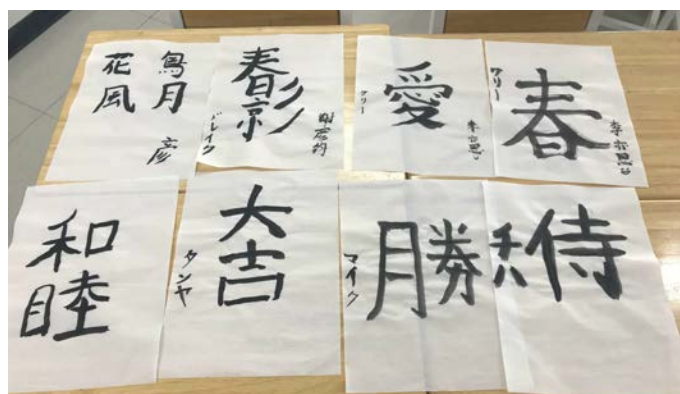 花鳥
風月
彦
春影
ドレイク
愛
ケリー
春
ケリー
和睦
大吉
タンヤ
勝
マイク
侍